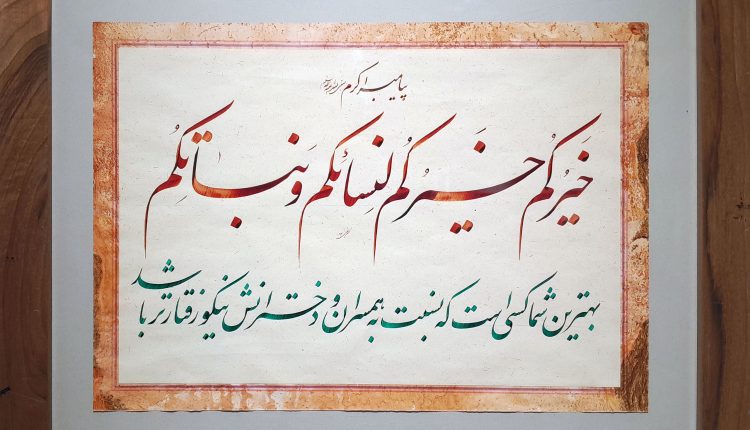 پیامبر اکرم
خَیرُکُم خَیرُکُم لِنِسائِکُم وَ بَناتِکُم
بهترین شما کسی است که نسبت به همسران و دخترانش نیکو رفتارتر باشد